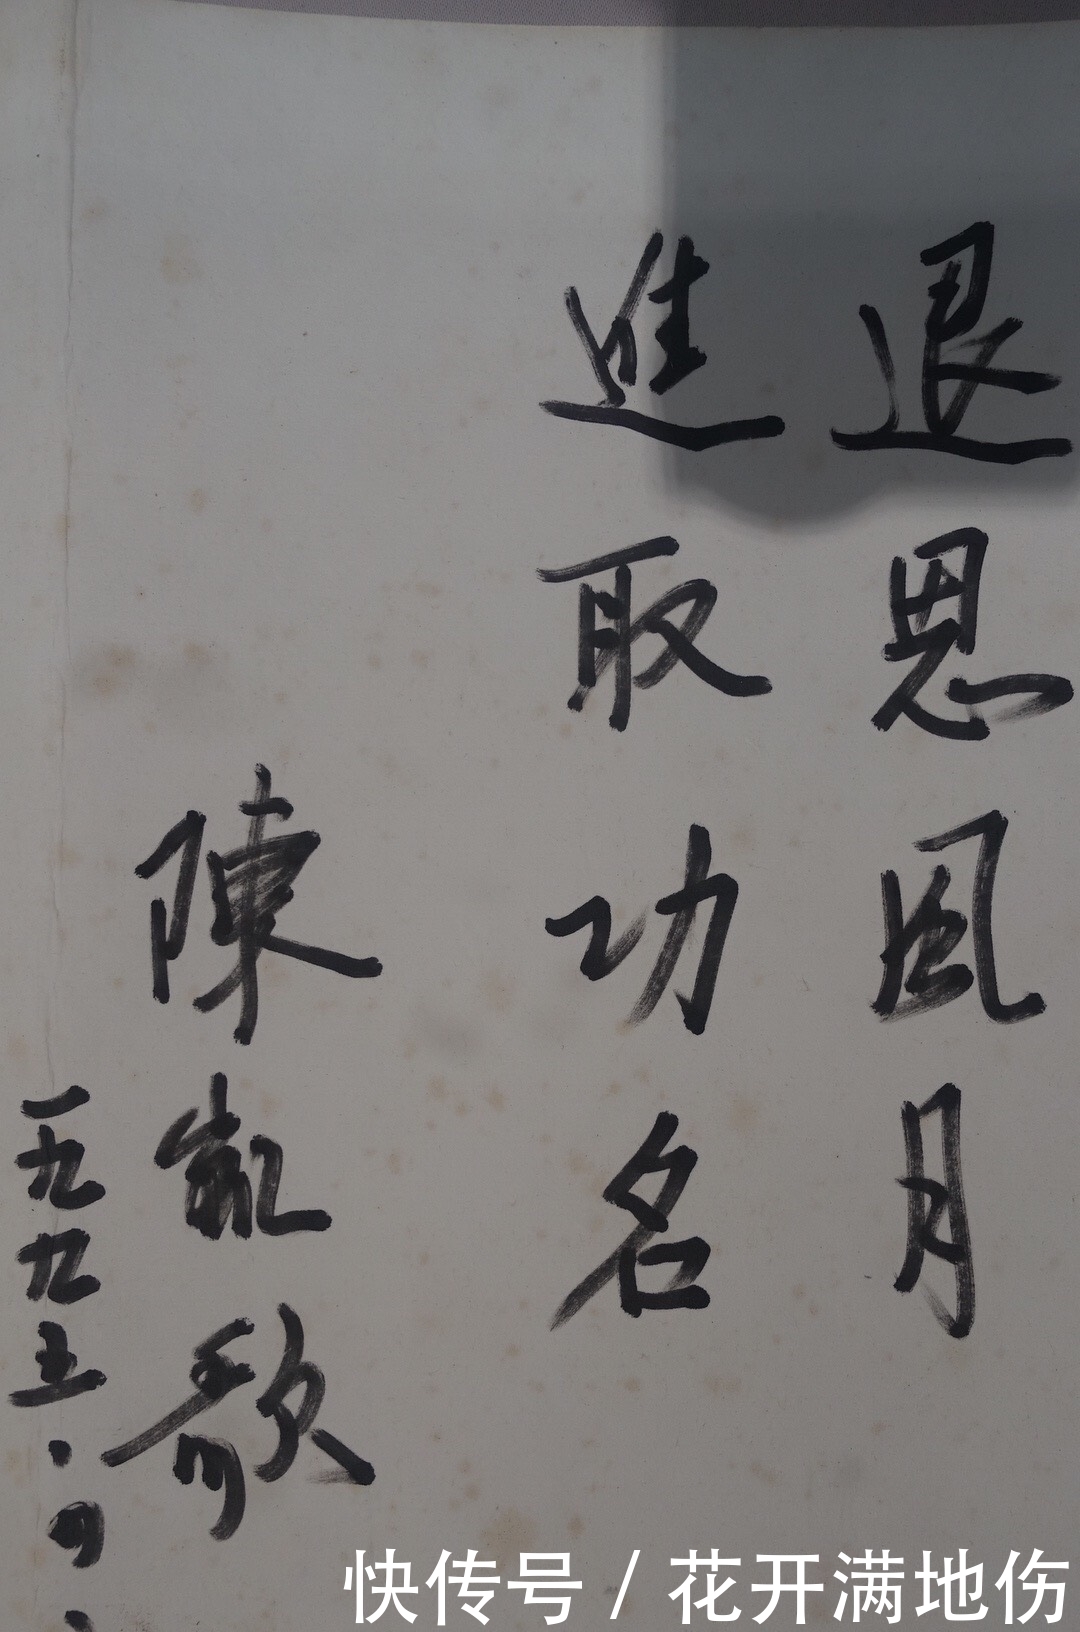 退思風月
進取功名
陳凱歌
一九九五.四.
快传号/花开满地伤